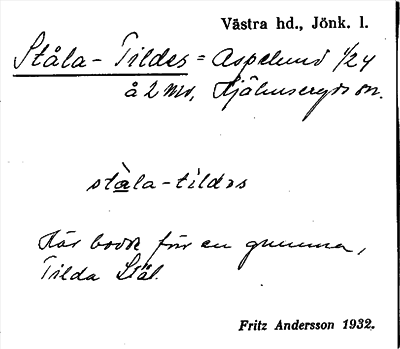 Västra hd., Jönk. l.
Ståla-Tildes = Aspelund 1/24
å 2 md, Hjälmseryds sn.
stàla-tildəs
Här bodde förr en gumma,
Tilda Stål.
Fritz Andersson 1932.